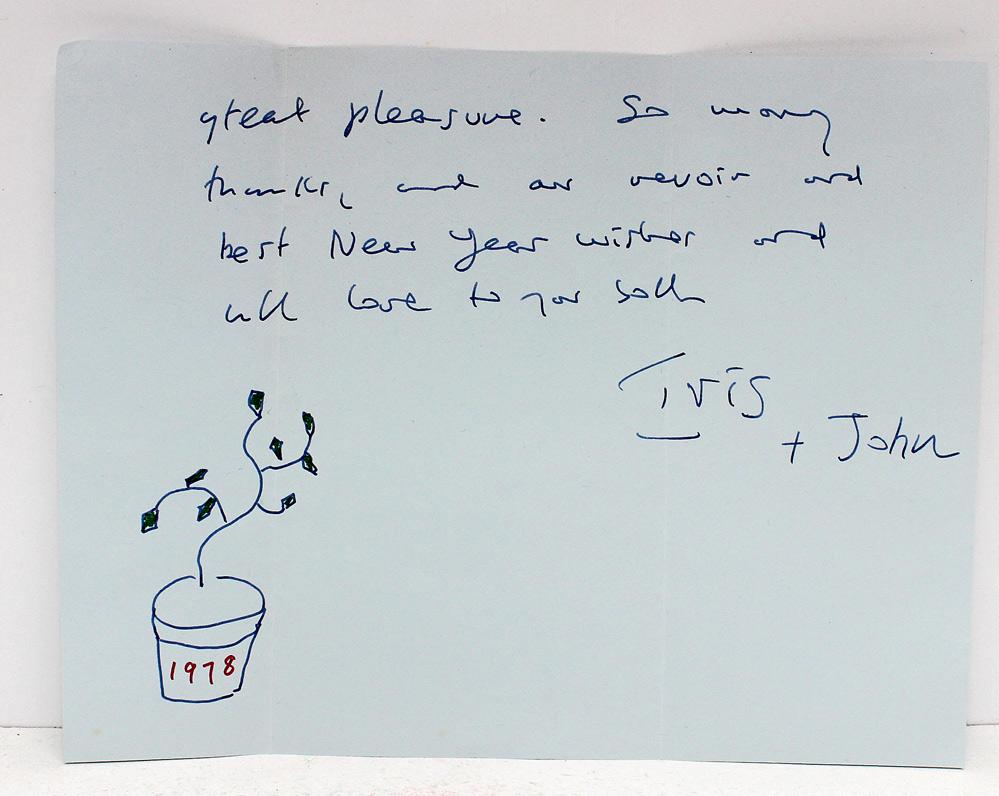 great pleasure. So many
thanks, and au revoir and
best New Year wishes and
all love to you both
Iris
+ John
1978